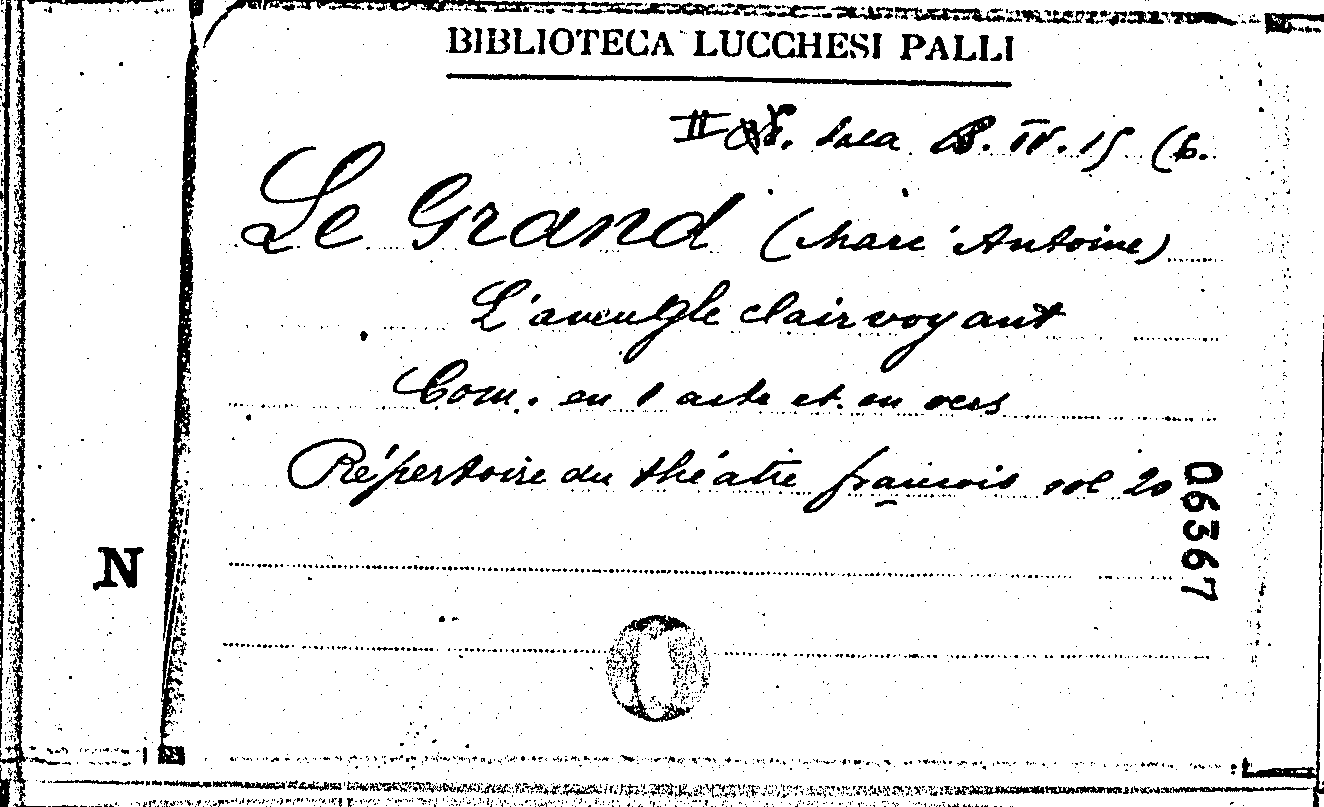 BIBLIOTECA LUCCHESI PALLI
II Sala B. IV. 15 (6.
Le Grand (Marc' Antoine)
L'aveugle clairvoyant
Com. en 1 acte et en vers
Répertoire du théatre françois vol 20
06367
N